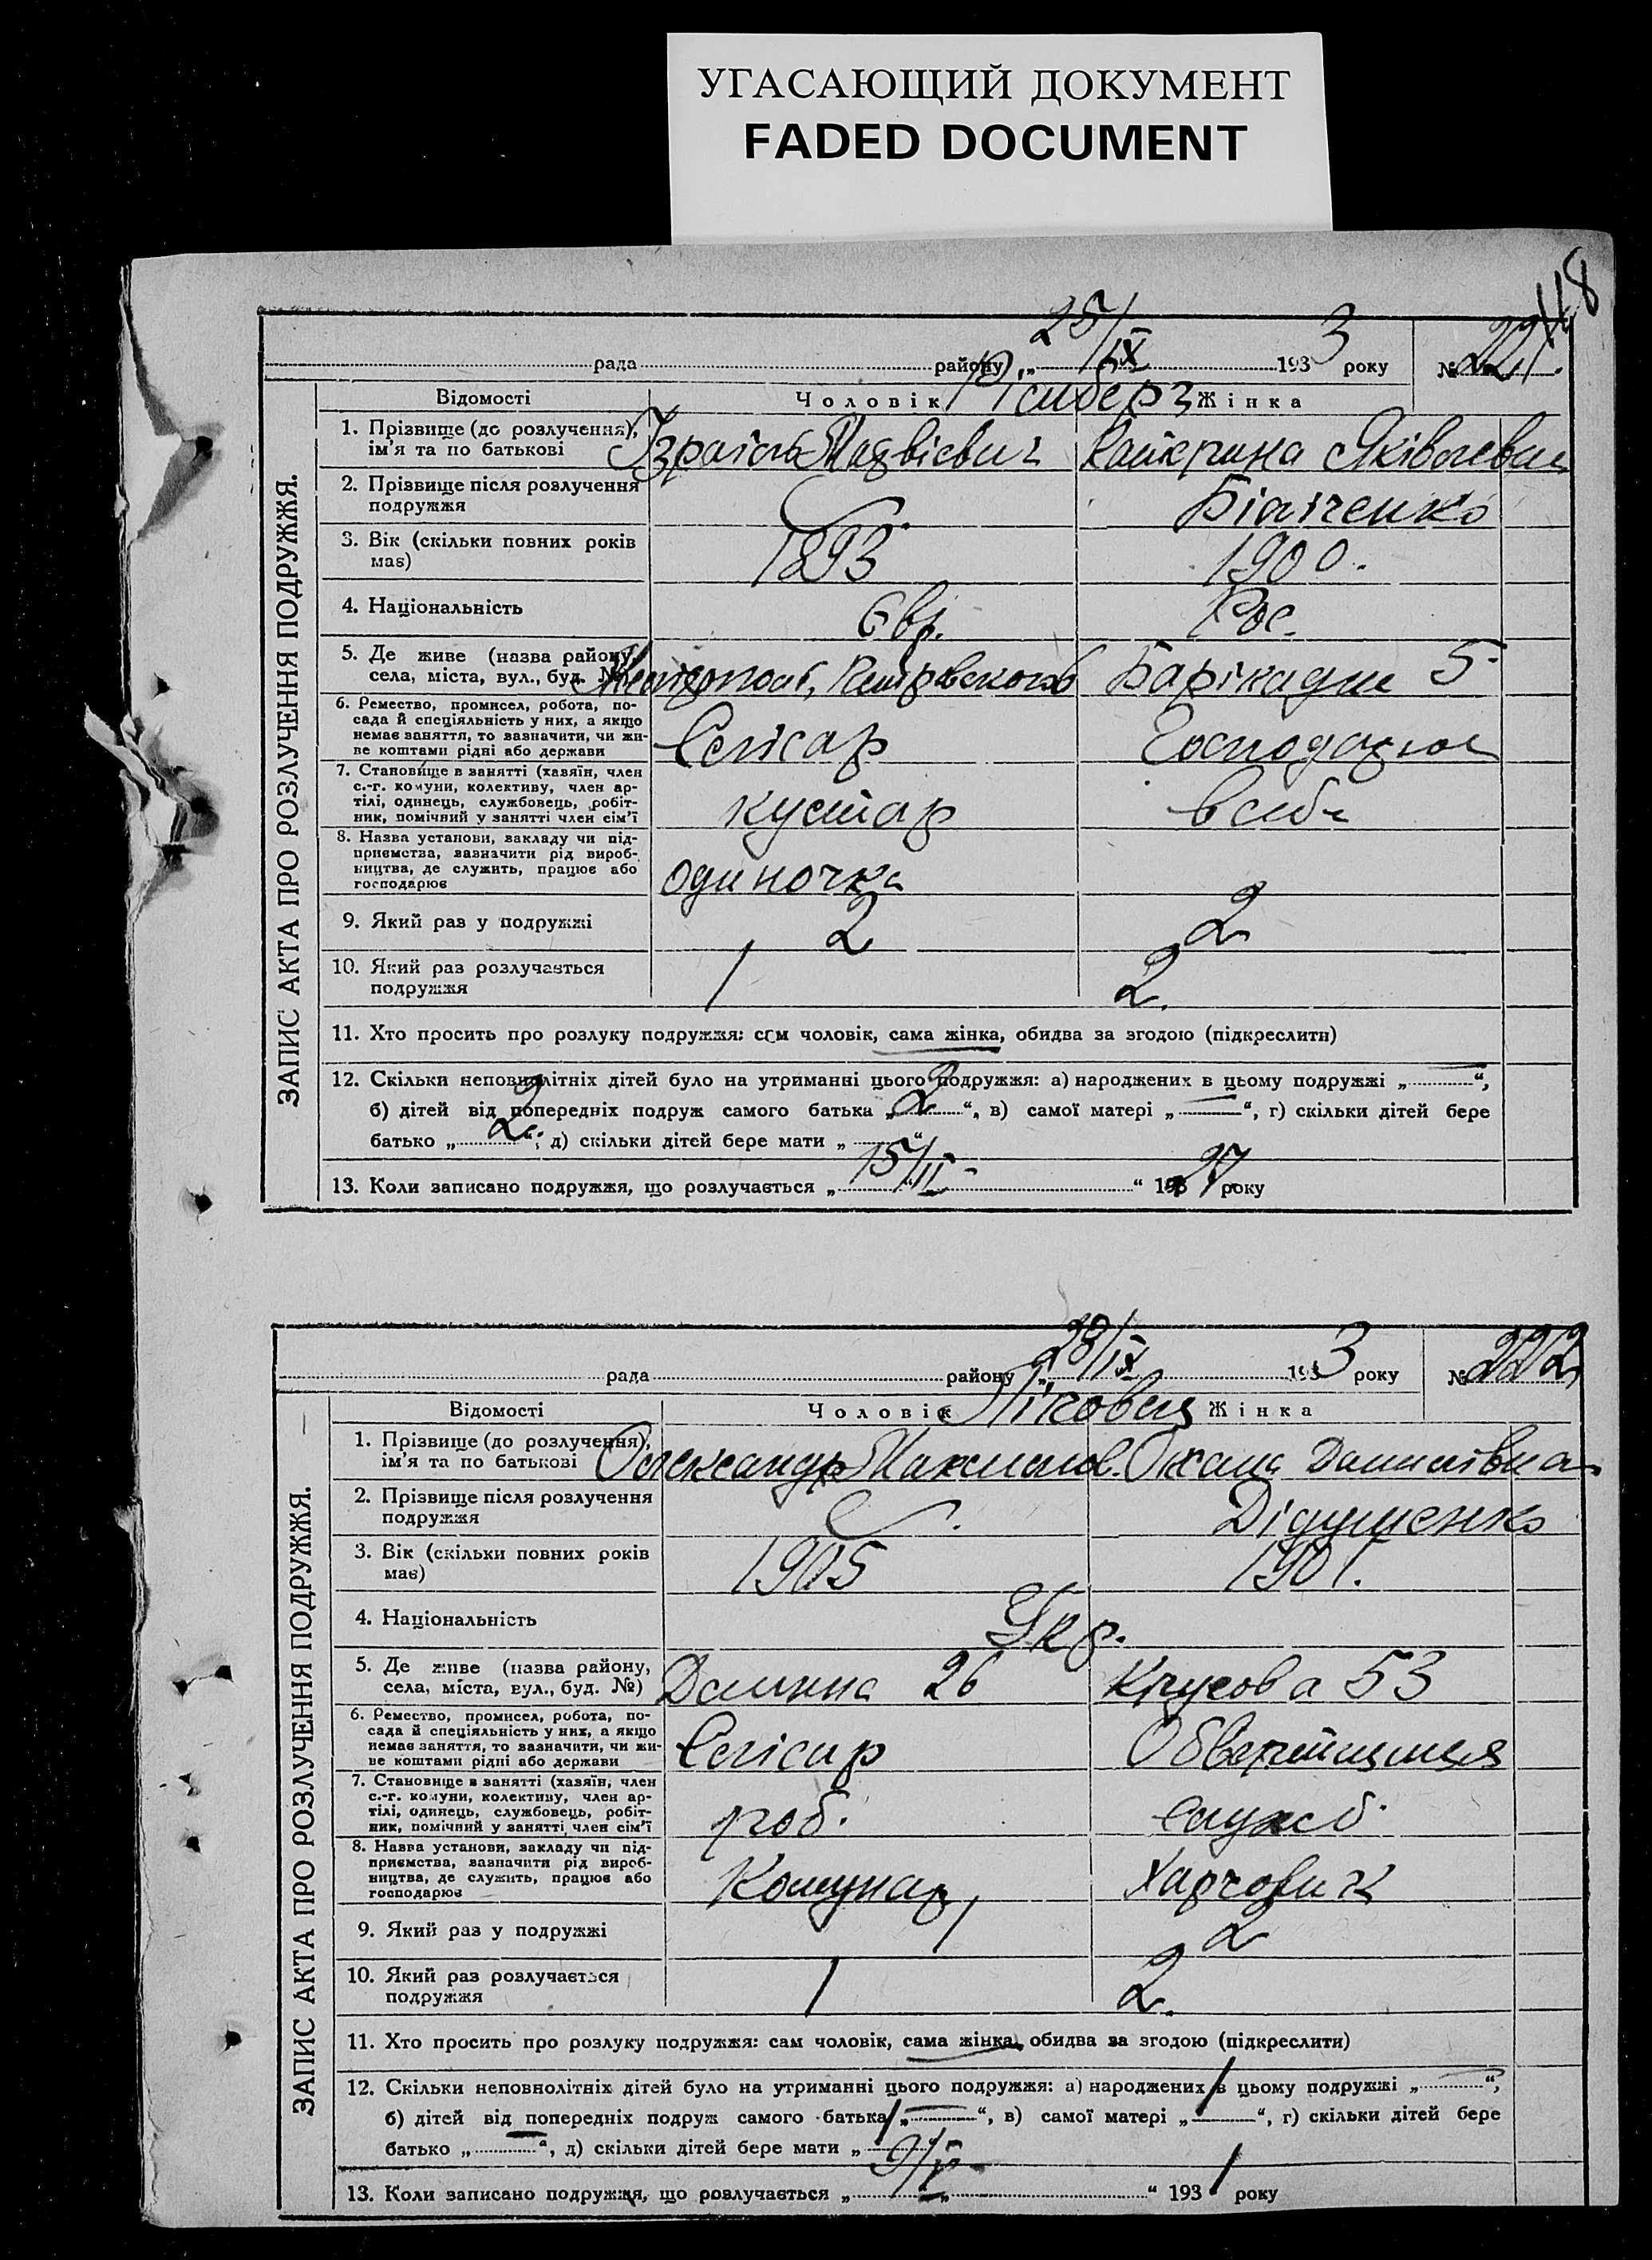 УГАСАЮЩИЙ ДОКУМЕНТ
FADED DOCUMENT
118
ЗАПИС АКТА ПРО РОЗЛУЧЕННЯ ПОДРУЖЖЯ.
рада району „ 25/IX 1933 року № 221.
Відомості Чоловік Жінка
1. Прізвище (до розлучення), ім'я та по батькові Ізраїль Яківлевна
2. Прізвище після розлучення подружжя Біліченко
3. Вік (скільки повних років має) 1893 1900.
4. Національність Євр. Рос.
5. Де живе (назва району, села, міста, вул., буд. №) Барікадне 5
6. Ремество, промисел, робота, по-
сада й спеціяльність у них, а якщо
немає заняття, то зазначити, чи жи-
ве коштами рідні або держави Слісар Господарює
7. Становище в занятті (хазяїн, член
с.-г. комуни, колективу, член ар-
тілі, одинець, службовець, робіт-
ник, помічний у занятті член сім'ї кустар в себе
8. Назва установи, закладу чи під-
приємства, зазначити рід вироб-
ництва, де служить, працює або
господарює одиночка
9. Який раз у подружжі 2 2
10. Який раз розлучається подружжя 1 2.
11. Хто просить про розлуку подружжя: сам чоловік, сама жінка, обидва за згодою (підкреслити)
12. Скільки неповнолітніх дітей було на утриманні цього подружжя: а) народжених в цьому подружжі „ — “,
б) дітей від попередніх подруж самого батька „ 2 “, в) самої матері „ — “, г) скільки дітей бере
батько „ 2 “; д) скільки дітей бере мати „ “
13. Коли записано подружжя, що розлучається „ 15/II “ 1927 року
ЗАПИС АКТА ПРО РОЗЛУЧЕННЯ ПОДРУЖЖЯ.
рада району „ 28/IX 1933 року № 222
Відомості Чоловік Жінка
1. Прізвище (до розлучення), ім'я та по батькові Олександр Максимов. Оксана Данилівна
2. Прізвище після розлучення подружжя Дідушенко
3. Вік (скільки повних років має) 1905 1901.
4. Національність Укр.
5. Де живе (назва району, села, міста, вул., буд. №) 26 53
6. Ремество, промисел, робота, по-
сада й спеціяльність у них, а якщо
немає заняття, то зазначити, чи жи-
ве коштами рідні або держави Слісар
7. Становище в занятті (хазяїн, член
с.-г. комуни, колективу, член ар-
тілі, одинець, службовець, робіт-
ник, помічний у занятті член сім'ї роб. служб.
8. Назва установи, закладу чи під-
приємства, зазначити рід вироб-
ництва, де служить, працює або
господарює Комунар Харчовик
9. Який раз у подружжі 1 2
10. Який раз розлучається подружжя 1 2.
11. Хто просить про розлуку подружжя: сам чоловік, сама жінка, обидва за згодою (підкреслити)
12. Скільки неповнолітніх дітей було на утриманні цього подружжя: а) народжених в цьому подружжі „ — “,
б) дітей від попередніх подруж самого батька „ — “, в) самої матері „ 1 “, г) скільки дітей бере
батько „ — “, д) скільки дітей бере мати „ 1 “
13. Коли записано подружжя, що розлучається „ 9/V “ 1931 року